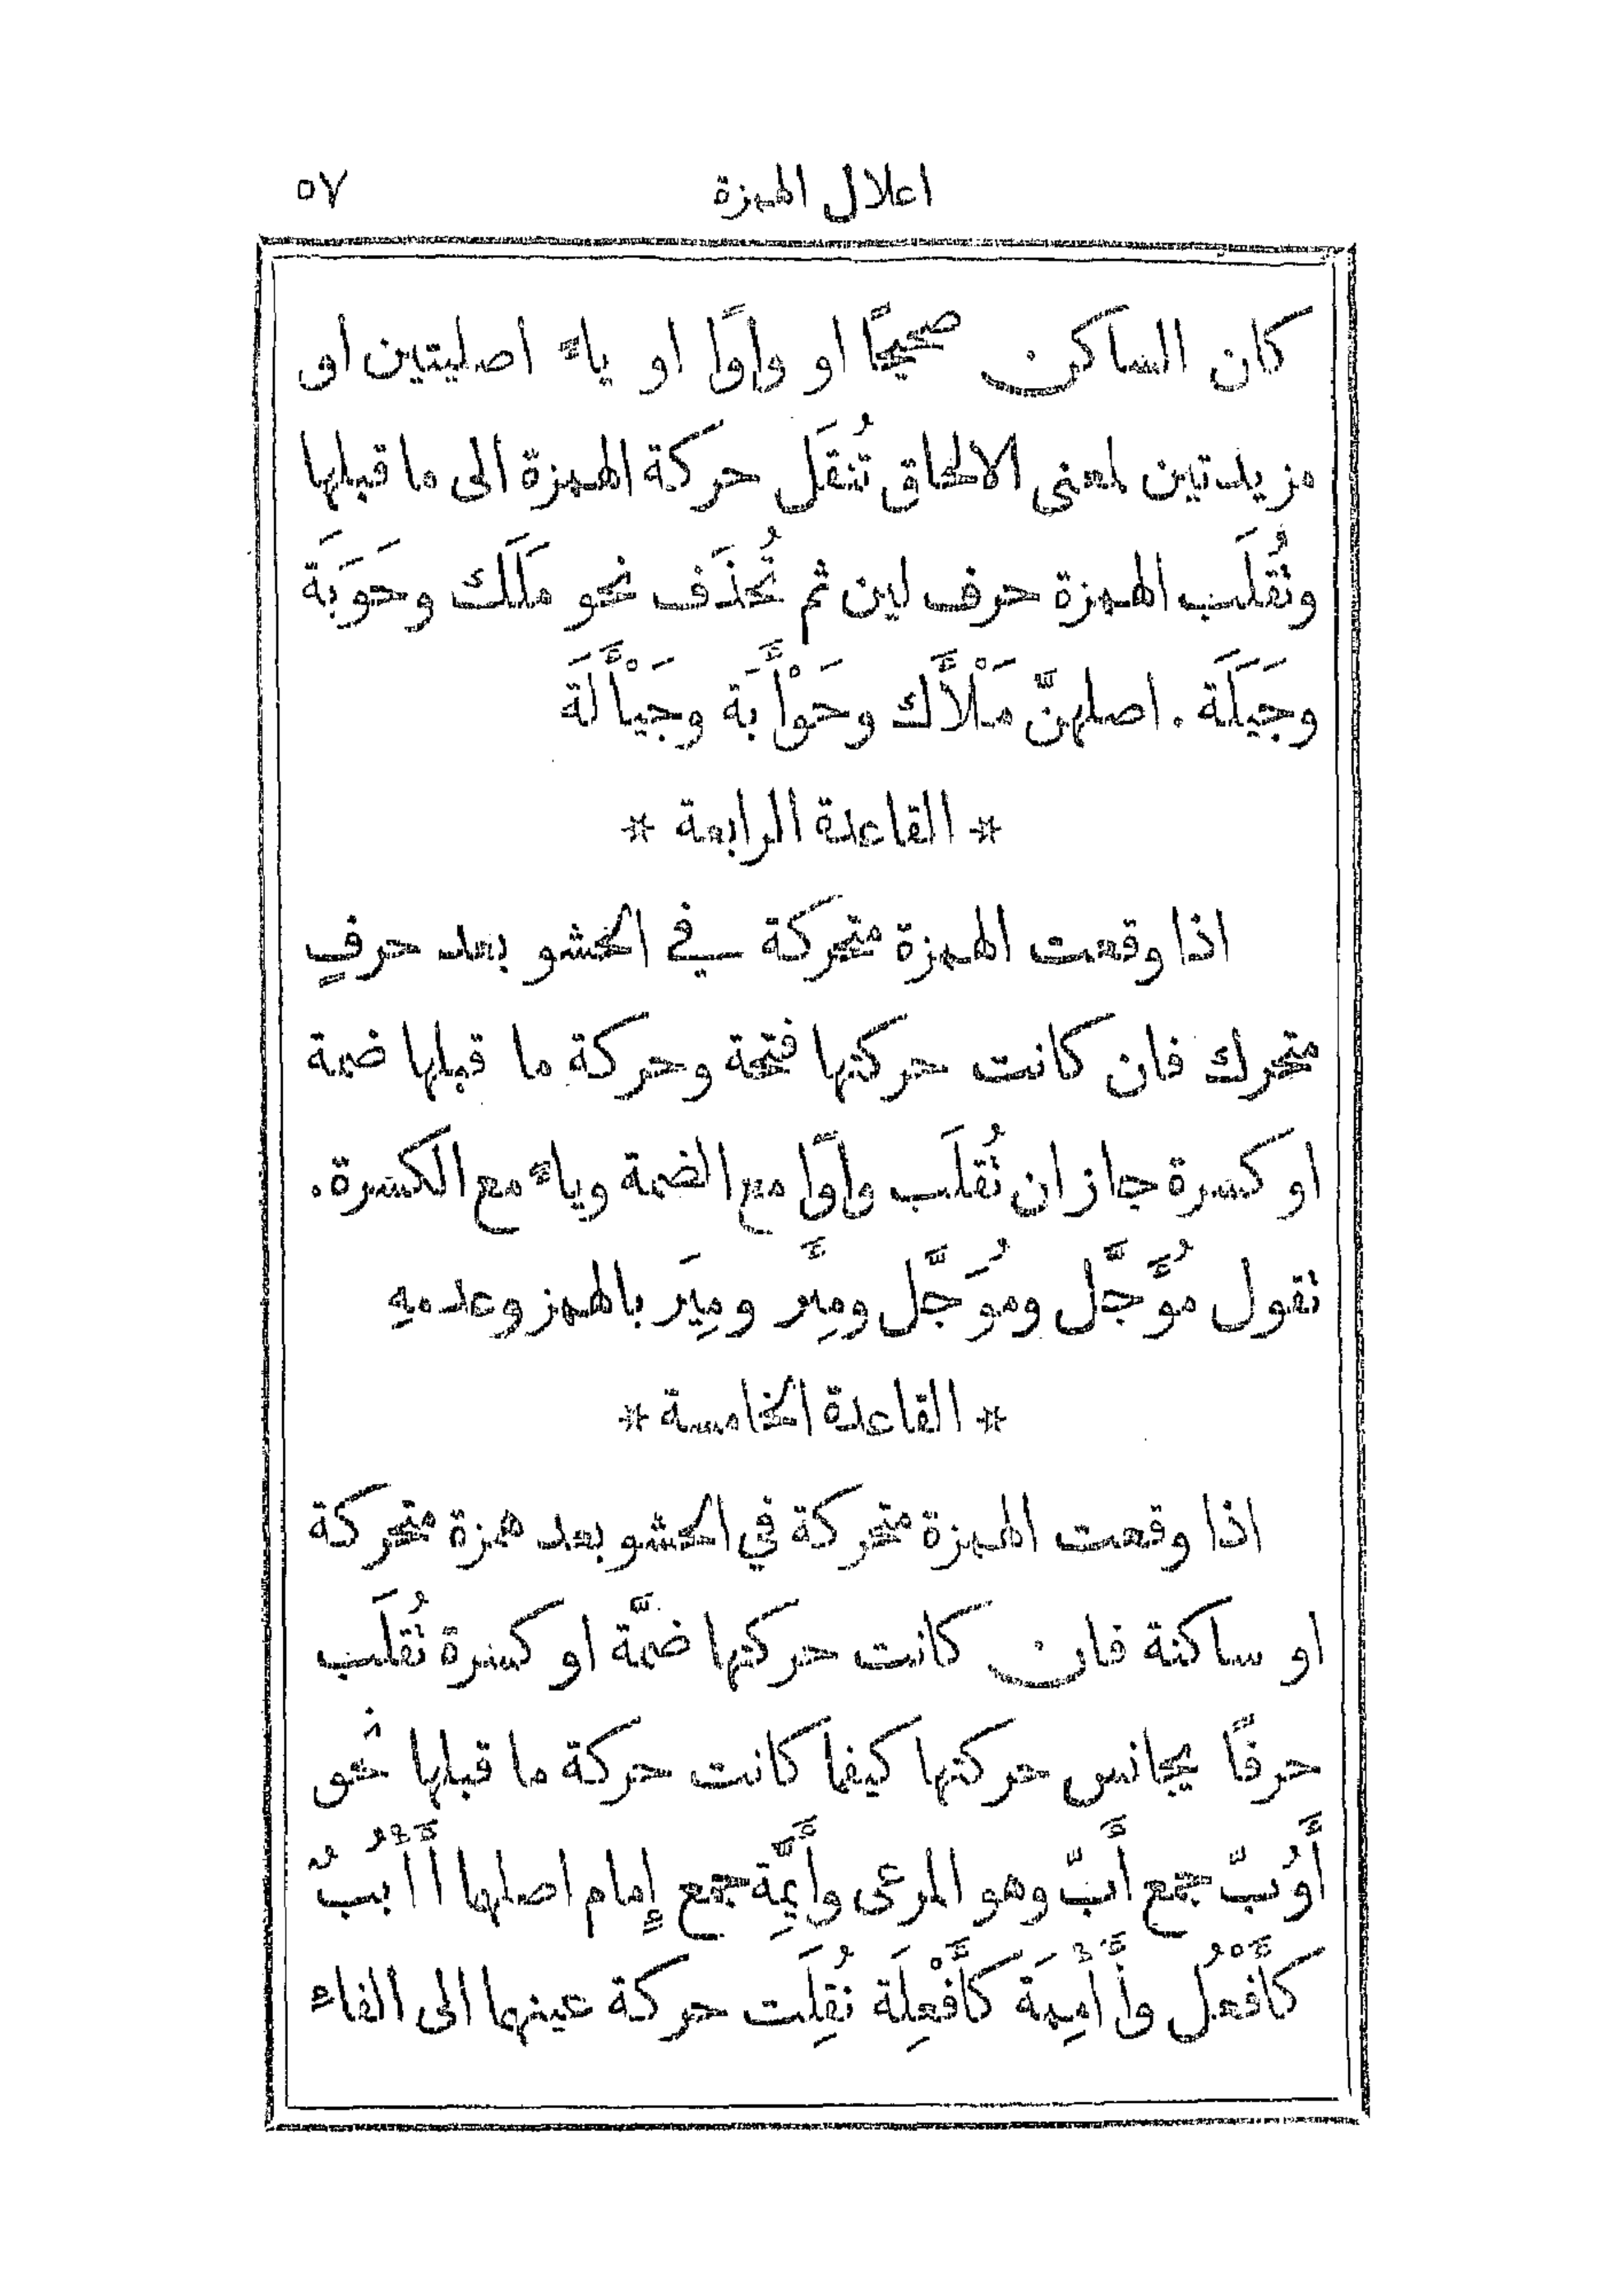 اعلال الهمزة ٥٧
كان الساكن صحيحًا او واوًا او ياءً اصليتين او
مزيدتين لمعنى الالحاق تُنقَل حركة الهمزة الى ما قبلها
وتُقلَب الهمزة حرف لين ثم تُحذَف نحو مَلَك وحَوَبَة
وجَيَلَة . اصلهنَّ مَلْأَك وحَوْأَبَة وجَيْأَلَة
* القاعدة الرابعة *
اذا وقعت الهمزة متحركة في الحشو بعد حرفٍ
متحرك فان كانت حركتها فتحة وحركة ما قبلها ضمة
او كسرة جاز ان تُقلَب واوًا مع الضمة وياءً مع الكسرة .
تقول مُؤَجَّل ومُوَجَّل ومِئَر ومِيَر بالهمز وعدمهِ
* القاعدة الخامسة *
اذا وقعت الهمزة متحركة في الحشو بعد همزة متحركة
او ساكنة فان كانت حركتها ضمَّة او كسرة تُقلَب
حرفًا يجانس حركتها كيفما كانت حركة ما قبلها نحو
أَوُبّ جمع أَبّ وهو المرعى وأَيِمَّة جمع إِمام اصلهما أَأْبُبٌ
كأَفْعُل وأَأْمِمَة كأَفْعِلَة نُقِلَت حركة عينهما الى الفاء